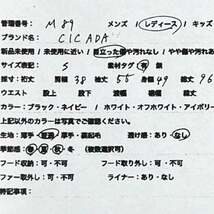 管理番号：M 89　メンズ / レディース / キッズ
ブランド名：CICADA
新品未使用 / 未使用に近い / 目立った傷や汚れなし / やや傷や汚れあ
サイズ表記：S　素材タグ：有・無
採寸：裄丈　肩幅 38 袖丈 55 身幅 49 着丈 96
ウエスト　股上　股下　わたり　裾幅
カラー：ブラック・ネイビー / ホワイト・オフホワイト・アイボリー
上記以外のカラーは写真でご確認ください
生地：薄手・普通・厚手・裏起毛　透け感：あり・なし
季節感：春・夏・秋・冬（複数選択可）
フード収納：可・不可　フード取り外し：可・不可
ファー取外し：可・不可　ライナー：あり・なし
特記事項：